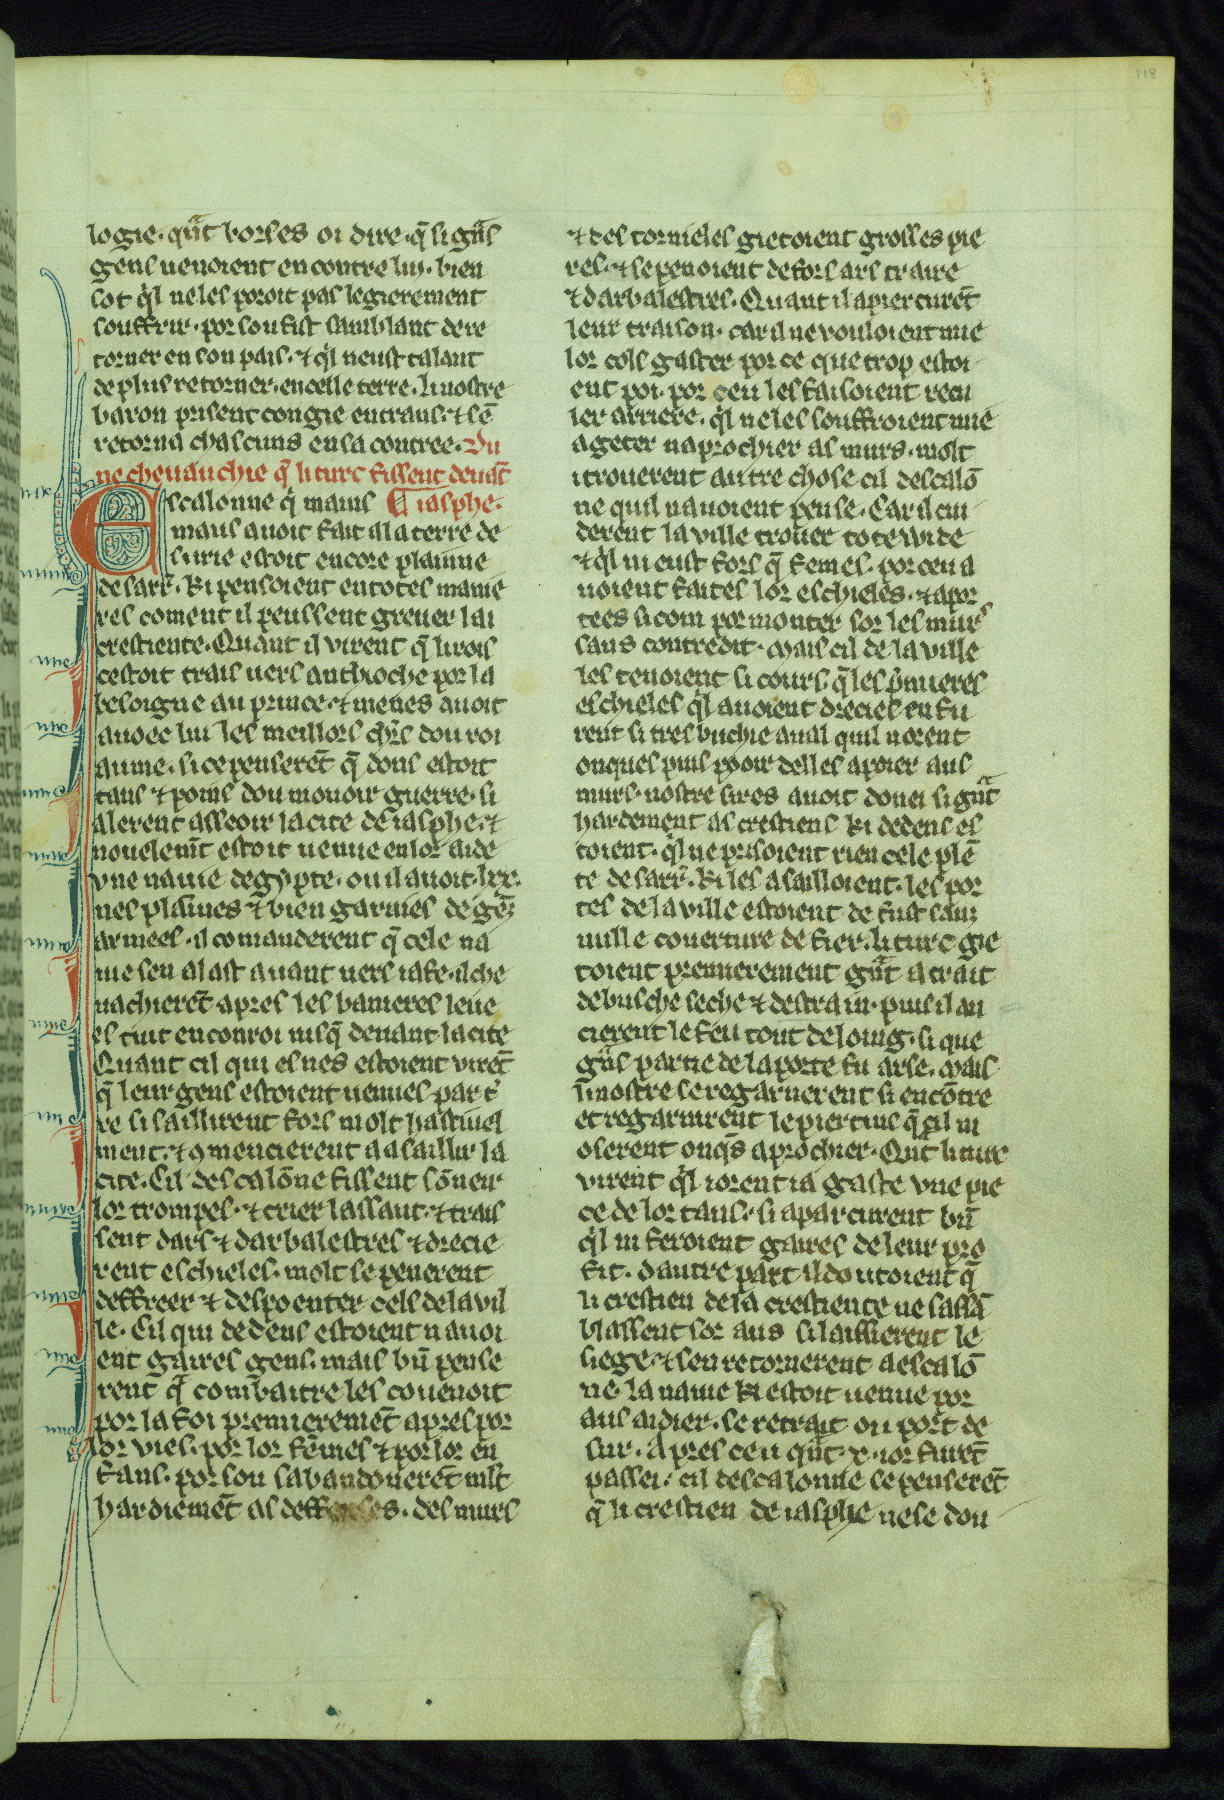 118
logie. qͣnt borses oi dire. q̃ si gͣns
gens uenoient encontre lui. bien
sot qͥl ne les poroit pas legierement
souffrir. por sou fist samblant de re
torner en son pais. ⁊ qͥl neust talant
de plus retorner. en celle terre. li nostre
baron prisent congie entraus. ⁊ sẽ
retorna chascuns en sa contree. Du
ne cheuauchie q̃ li turc fissent deuãt
Escalonne qͥ mains iasphe.
maus auoit fait a la terre de
surie estoit encore plainne
de sarr̃. Ki pensoient en totes manie
res coment il peussent greuer la
crestiente. Quant il virent q̃ li rois
cestoit trais uers anthioche por la
besoigne au prince. ⁊ menes auoit
auoec lui les meillors chr̃s dou roi
aume. si ce penserẽt q̃ dons estoit
taus ⁊ poins dou mouoir guerre. si
alerent asseoir la cite de iasphe. ⁊
nouelem̃t estoit uenue en lor aide
vne nauie degypte. ou il auoit. lxx.
nes plaines ⁊ bien garnies de gẽz
armees. il comanderent q̃ cele na
uie sen alast auant uers iafe. il che
uachierẽt apres les banieres leue
es tuit en conroi iusq̃ deuant la cite
Quant cil qui es nes estoient virẽt
q̃ leur gens estoient uenues par t̃
re si saillirent fors molt hastiuel
ment. ⁊ ꝯmencierent a asaillir la
cite. Cil descalõne fissent sõner
lor trompes. ⁊ crier lassaut. ⁊ trais
sent dars ⁊ darbalestres ⁊ drecie
rent eschieles. molt se penerent
deffreer ⁊ despoenter cels de la vil
le. Cil qui dedens estoient nauoi
ent gaires gens. mais bñ pense
rent q̃ combatre les couenoit
por la foi premieremẽt apres por
lor vies. por lor fẽmes ⁊ por lor en
fans. por sou sabandonerẽt mlt
hardiemẽt as deffenses. des murs
⁊ des torneles gietoient grosses pie
res. ⁊ se penoient de fors ars traire
⁊ darbalestres. Quant il apiercurẽt
leur traison. car il ne vouloient mie
lor cols gaster por ce que trop estoi
ent poi. por ceu les faisoient recu
ler arriere. qͥl ne les souffroient mie
a geter naprochier as murs. molt
i trouerent autre chose cil descalõ
ne quil nauoient pense. Car il cui
derent la ville trouer tote wide
⁊ qͥl ni eust fors q̃ femes. por ceu a
uoient faites lor eschieles. ⁊ apor
tees si com por monter sor les murs
sans contredit. Mais cil de la ville
les tenoient si cours. q̃ les p̃mieres
eschieles qͥl auoient drecies en fu
rent si tresbuchie aual quil norent
onques puis pooir delles apoier aus
murs. nostre sires auoit donei si gͣnt
hardement as crestiens Ki dedens es
toient. qͥl ne prisoient rien cele plẽ
te de sarr̃. Ki les asailloient. les por
tes de la ville estoient de fust sanz
nulle couerture de fier. li turc gie
toient premierement gͣnt atrait
de busche seche ⁊ destrain. puis il an
cierent le feu tout de loing. si que
gͣns partie de la porte fu arse. Mais
li nostre se regarnerent si encõtre
et regarnirent le piertuis q̃ cil ni
oserent onqs̃ aprochier. Qñt li turc
virent qͥl iorent ia gaste vne pie
ce de lor tans. si aparcurent bñ
qͥl ni feroient gaires de leur pro
fit. dautre part il doutoient q̃
li crestien de la crestiente ne sassã
blassent sor aus si laissierent le
siege. ⁊ sen retornerent a escalõ
ne. la nauie Ki estoit uenue por
aus aidier. se retrait ou port de
sur. Apres ceu qͣnt. x. ior furẽt
passei. cil descalonne se penserẽt
q̃ li crestien de iasphe ne se dou